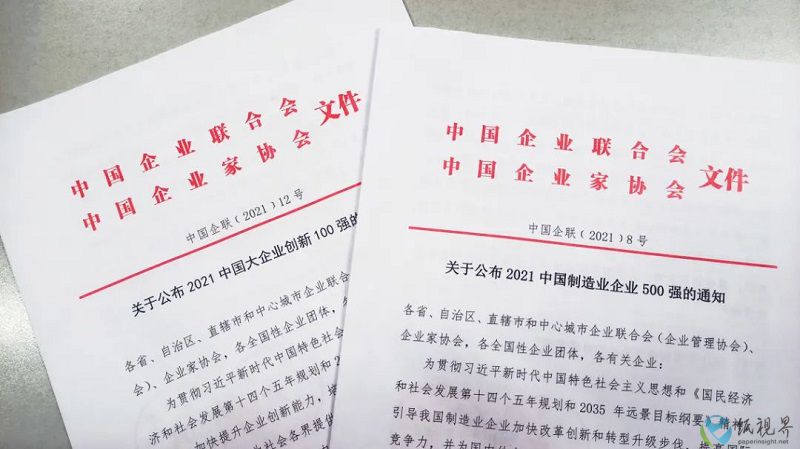 中国企业联合会
中国企业家协会
文件
中国企联〔2021〕12号
关于公布2021中国大企业创新100强的
各省、自治区、直辖市和中心城市企业联合
会)、企业家协会，各全国性企业团体，
为贯彻习近平新时代中国特色社会
济和社会发展第十四个五年规划和2
加快提升企业创新能力，
业在社会各界提供
中国企业联合会
中国企业家协会
文件
中国企联〔2021〕8号
关于公布2021中国制造业企业500强的通知
各省、自治区、直辖市和中心城市企业联合会（企业管理协会）、
企业家协会，各全国性企业团体，各有关企业：
为贯彻习近平新时代中国特色社会主义思想和《国民经济
和社会发展第十四个五年规划和2035年远景目标纲要》精神，
引导我国制造业企业加快改革创新和转型升级步伐，提高国际
竞争力，并为国内
纸视界
paperinsight.net